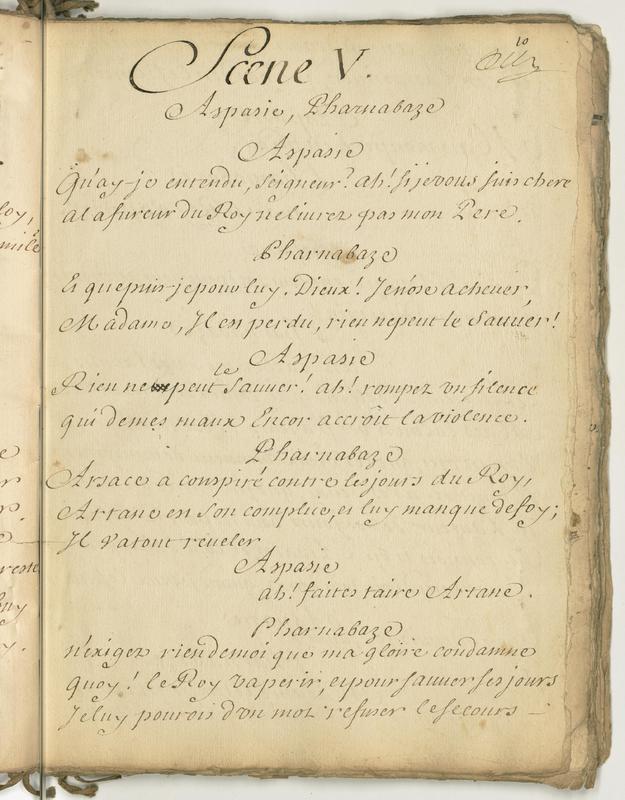 10
Scene V.
Aspasie, Pharnabaze
Aspasie
Qu'ay-je entendu, seigneur? ah! si je vous suis chere
a la fureur du Roy ne livrez pas mon Pere.
Pharnabaze
Et que puis-je pour luy. Dieux! Je n'ose achever
Madame, Il est perdu, rien ne peut le Sauver!
Aspasie
Rien ne peut le Sauver! ah! rompez un silence
qui de mes maux Encor accroît la violence.
Pharnabaze
Arsace a conspiré contre les jours du Roy,
Artane est son complice, et luy manque de foy;
Il va tout reveler
Aspasie
ah! faites taire Artane.
Pharnabaze
n'exigez rien de moi que ma gloire condamne
quoy! le Roy va perir, et pour sauver ses jours
Je luy pourois d'un mot refuser le secours
foy,
mile
reste